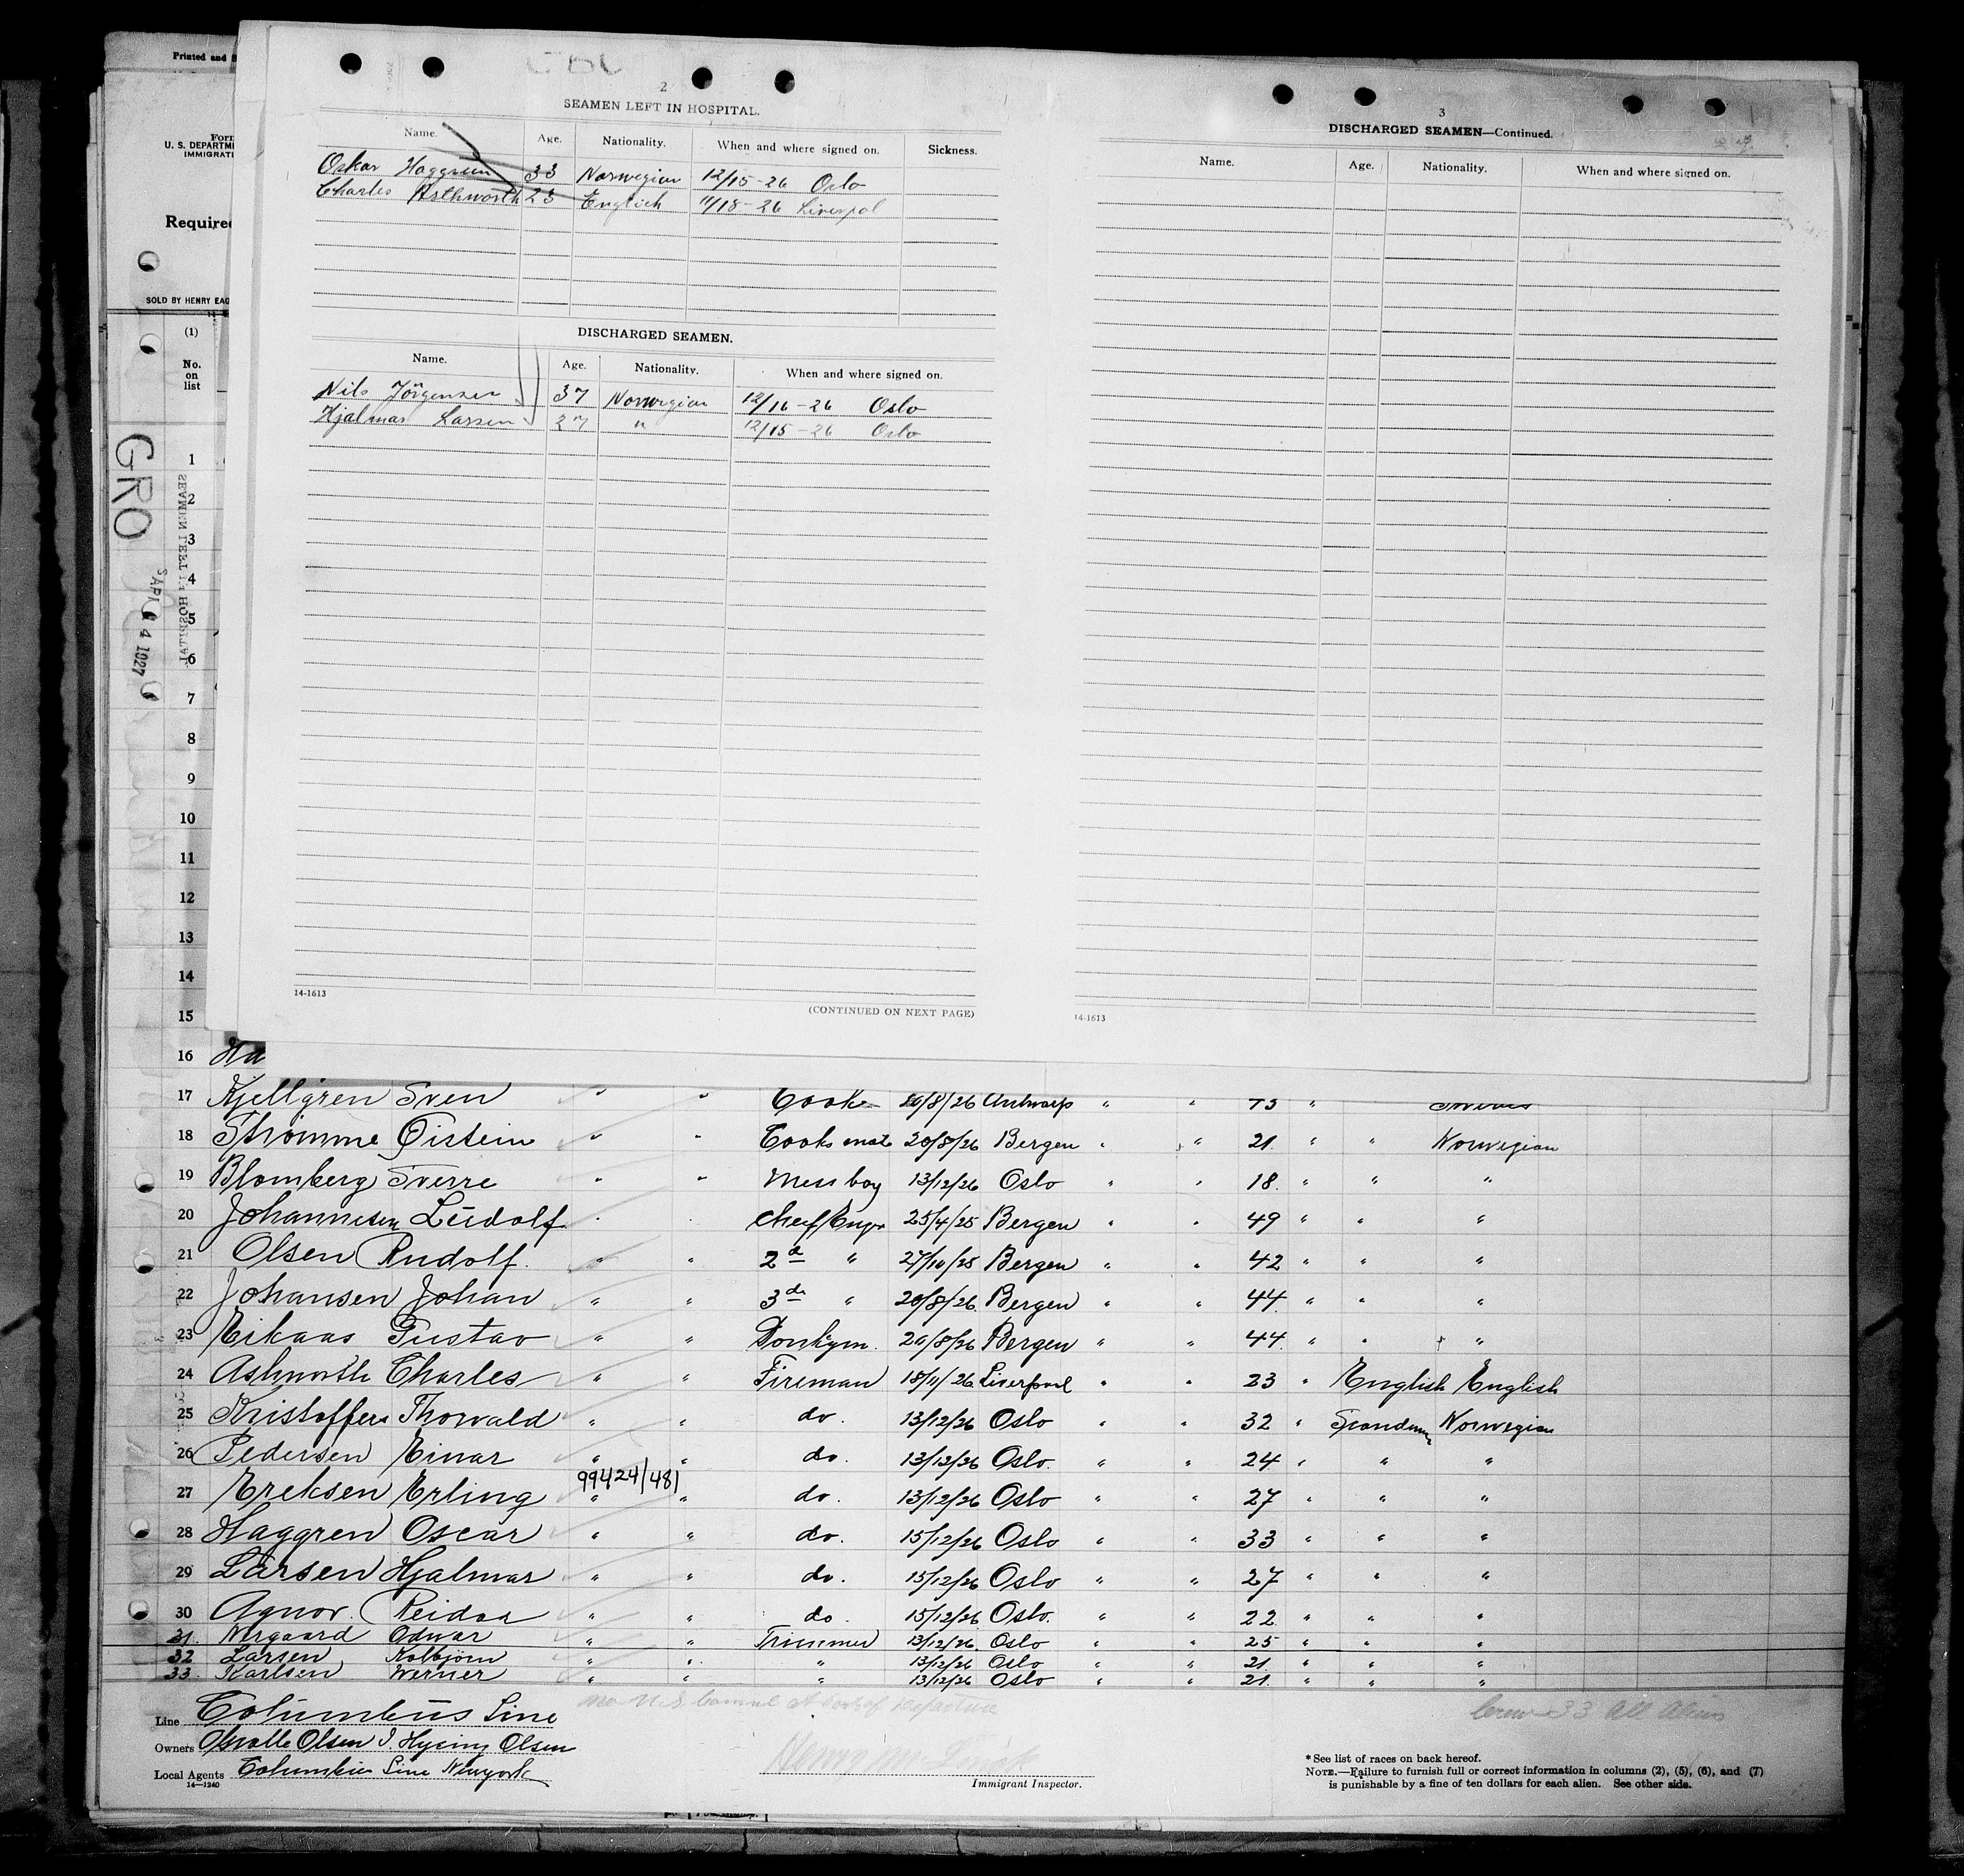 Printed and
2
SEAMEN LEFT IN HOSPITAL.
Name. Age. Nationality. When and where signed on. Sickness.
Oskar Haggren 33 Norwegian 12/15-26 Oslo
Charles Asthworth 23 English 11/18-26 Liverpol
DISCHARGED SEAMEN.
Name. Age. Nationality. When and where signed on.
Nils Jörgensen 37 Norwegian 12/16-26 Oslo
Hjalmar Larsen 27 " 12/15-26 Oslo
14-1613
(CONTINUED ON NEXT PAGE)
3
DISCHARGED SEAMEN—Continued.
Name. Age. Nationality. When and where signed on.
14-1613
Form
U. S. DEPARTME
IMMIGRATI
Required
SOLD BY HENRY EAG
(1)
No.
on
list
GRO
SEAMEN LEFT IN HOSPITAL.
1
2
3
4
5
6
7
8
9
10
11
12
13
14
15
16 Ha
17 Kjellgren Sven " " Cook 20/8/26 Antwerp " " 43 "
18 Strømme Øistein " " Cooks mate 20/8/26 Bergen " " 21 " " Norwegian
19 Blomberg Sverre " " Mess boy 13/12/26 Oslo " " 18 " " "
20 Johannesen Ludolf " " Cheef Engr 25/4/25 Bergen " " 49 " " "
21 Olsen Rudolf. " " 2d " 27/10/25 Bergen " " 42 " " "
22 Johansen Johan " " 3de " 20/8/26 Bergen " " 44 " " "
23 Eikaas Gustav " " Donkym. 20/8/26 Bergen " " 44 " " "
24 Ashworth Charles " " Fireman 18/11/26 Liverpool " " 23 " English English
25 Kristoffers Thorvald " " do. 13/12/26 Oslo " " 32 " Scandinav Norwegian
26 Pedersen Einar " " do. 13/12/26 Oslo " " 24 " " "
99424/481
27 Ereksen Erling " " do. 13/12/26 Oslo " " 27 " " "
28 Haggren Oscar " " do. 15/12/26 Oslo " " 33 " " "
29 Larsen Hjalmar " " do. 15/12/26 Oslo " " 27 " " "
30 Agnor Reidar " " do. 15/12/26 Oslo " " 22 " " "
31. Norgaard Odvar " " Trimmer 13/12/26 Oslo " " 25 " " "
32 Larsen Kolbjörn " " " 13/12/26 Oslo " " 21 " " "
33. Karlsen Werner " " " 13/12/26 Oslo " " 21 " " "
no U.S. Consul at Port of departure
Crew 33 All Aliens
Line Columbus Line
Owners Olsen Olsen
Local Agents Columbus Line Newyork
14—1240
Immigrant Inspector.
* See list of races on back hereof.
NOTE.—Failure to furnish full or correct information in columns (2), (5), (6), and (7)
is punishable by a fine of ten dollars for each alien. See other side.